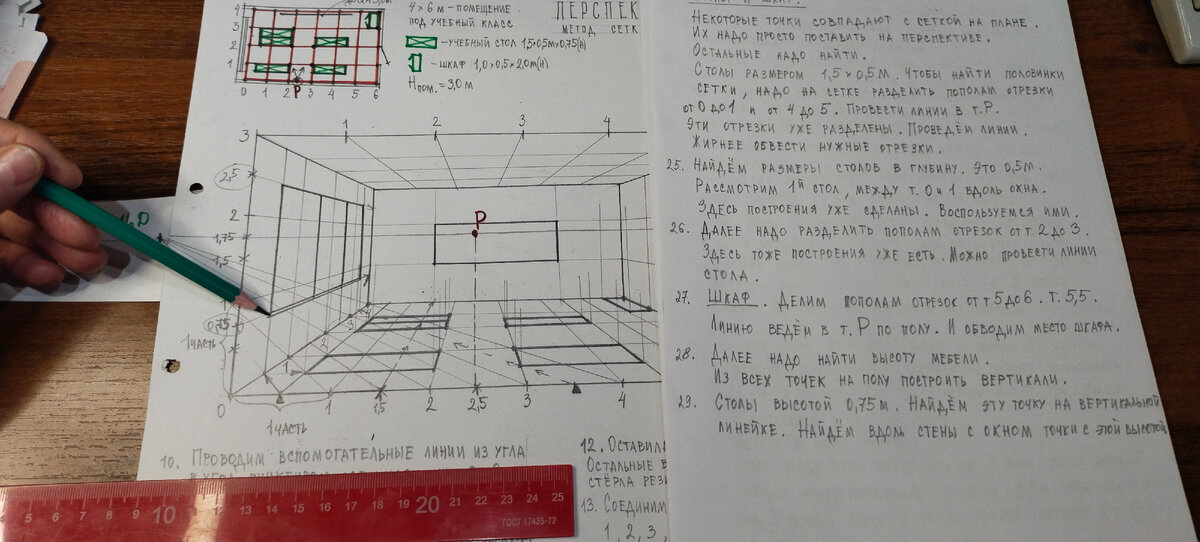 4
3
2
1
0 1 2 3 4 5 6
P
4 × 6 м – помещение
под учебный класс
– учебный стол 1,5×0,5м×0,75(н)
– шкаф 1,0×0,5×2,0м(н)
Нпом. = 3,0 м
ПЕРСПЕК
МЕТОД СЕТК
1 2 3 4
3
2,5
2
1,75
1,5
1
0,75
1 часть
P
3
2
1
0 1 1,5 2 2,5 3 4
1 часть
10. Проводим вспомогательные линии из угла
12. Оставил
Остальные в
стёрла рези
13. Соединим
1, 2, 3,
Некоторые точки совпадают с сеткой на плане.
Их надо просто поставить на перспективе.
Остальные надо найти.
Столы размером 1,5×0,5м. Чтобы найти половинки
сетки, надо на сетке разделить пополам отрезки
от 0 до 1 и от 4 до 5. Провести линии в т. Р.
Эти отрезки уже разделены. Проведём линии.
Жирнее обвести нужные отрезки.
25. Найдём размеры столов в глубину. Это 0,5м.
Рассмотрим 1й стол, между т. 0 и 1 вдоль окна.
Здесь построения уже сделаны. Воспользуемся ими.
26. Далее надо разделить пополам отрезок от т. 2 до 3.
Здесь тоже построения уже есть. Можно провести линии
стола.
27. Шкаф. Делим пополам отрезок от т 5 до 6. т. 5,5.
Линию ведём в т. Р по полу. И обводим место шкафа.
28. Далее надо найти высоту мебели.
Из всех точек на полу построить вертикали.
29. Столы высотой 0,75м. Найдём эту точку на вертикальной
линейке. Найдём вдоль стены с окном точки с этой высотой
5 6 7 8 9 10 11 12 13 14 15 16 17 18 19 20 21 22 23 24 25
ГОСТ 17435-72